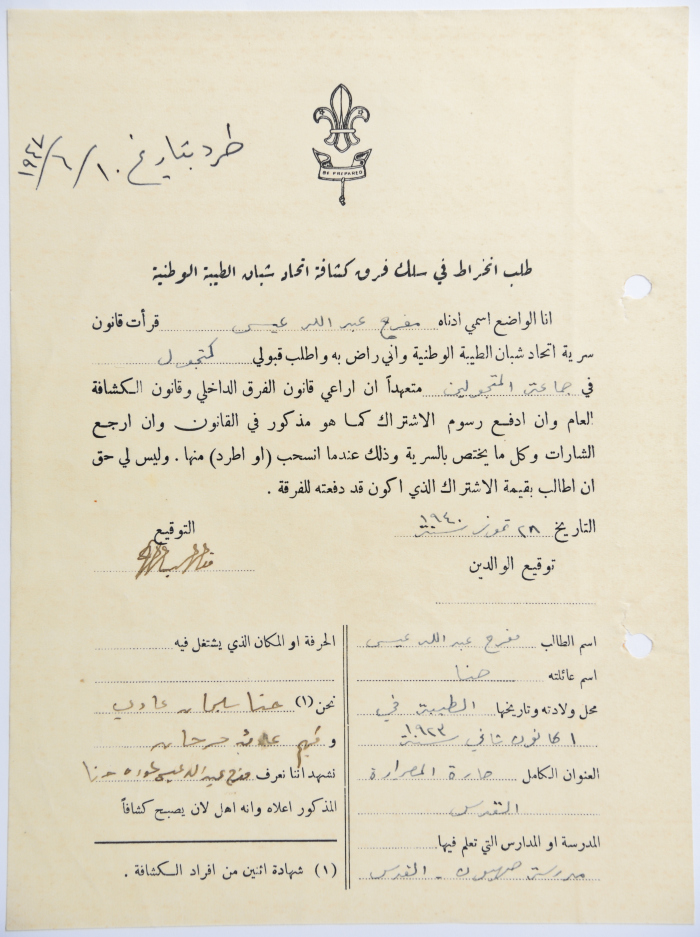 طرد بتاريخ ١٠/٦/١٩٤٧
BE PREPARED
طلب انخراط في سلك فرق كشافة اتحاد شبان الطيبة الوطنية
انا الواضع اسمي ادناه مفرح عبد الله عيسى قرأت قانون
سرية اتحاد شبان الطيبة الوطنية واني راض به واطلب قبولي كمتجول
في جماعة المتجولين متعهداً ان اراعي قانون الفرق الداخلي وقانون الكشافة
العام وان ادفع رسوم الاشتراك كما هو مذكور في القانون وان ارجع
الشارات وكل ما يختص بالسرية وذلك عندما انسحب (او اطرد) منها . وليس لي حق
ان اطالب بقيمة الاشتراك الذي اكون قد دفعته للفرقة .
التاريخ ٢٨ تموز سنة ١٩٤٠
التوقيع
توقيع الوالدين
اسم الطالب مفرح عبد الله عيسى
اسم عائلته حنا
محل ولادته وتاريخها الطيبة في
١ كانون ثاني سنة ١٩٢٣
العنوان الكامل حارة المصرارة
القدس
المدرسة او المدارس التي تعلم فيها
مدرسة صهيون - القدس
الحرفة او المكان الذي يشتغل فيه
نحن (١) حنا سليمان
و
نشهد اننا نعرف مفرح عبد الله عيسى حنا
المذكور اعلاه وانه اهل لان يصبح كشافاً
(١) شهادة اثنين من افراد الكشافة .